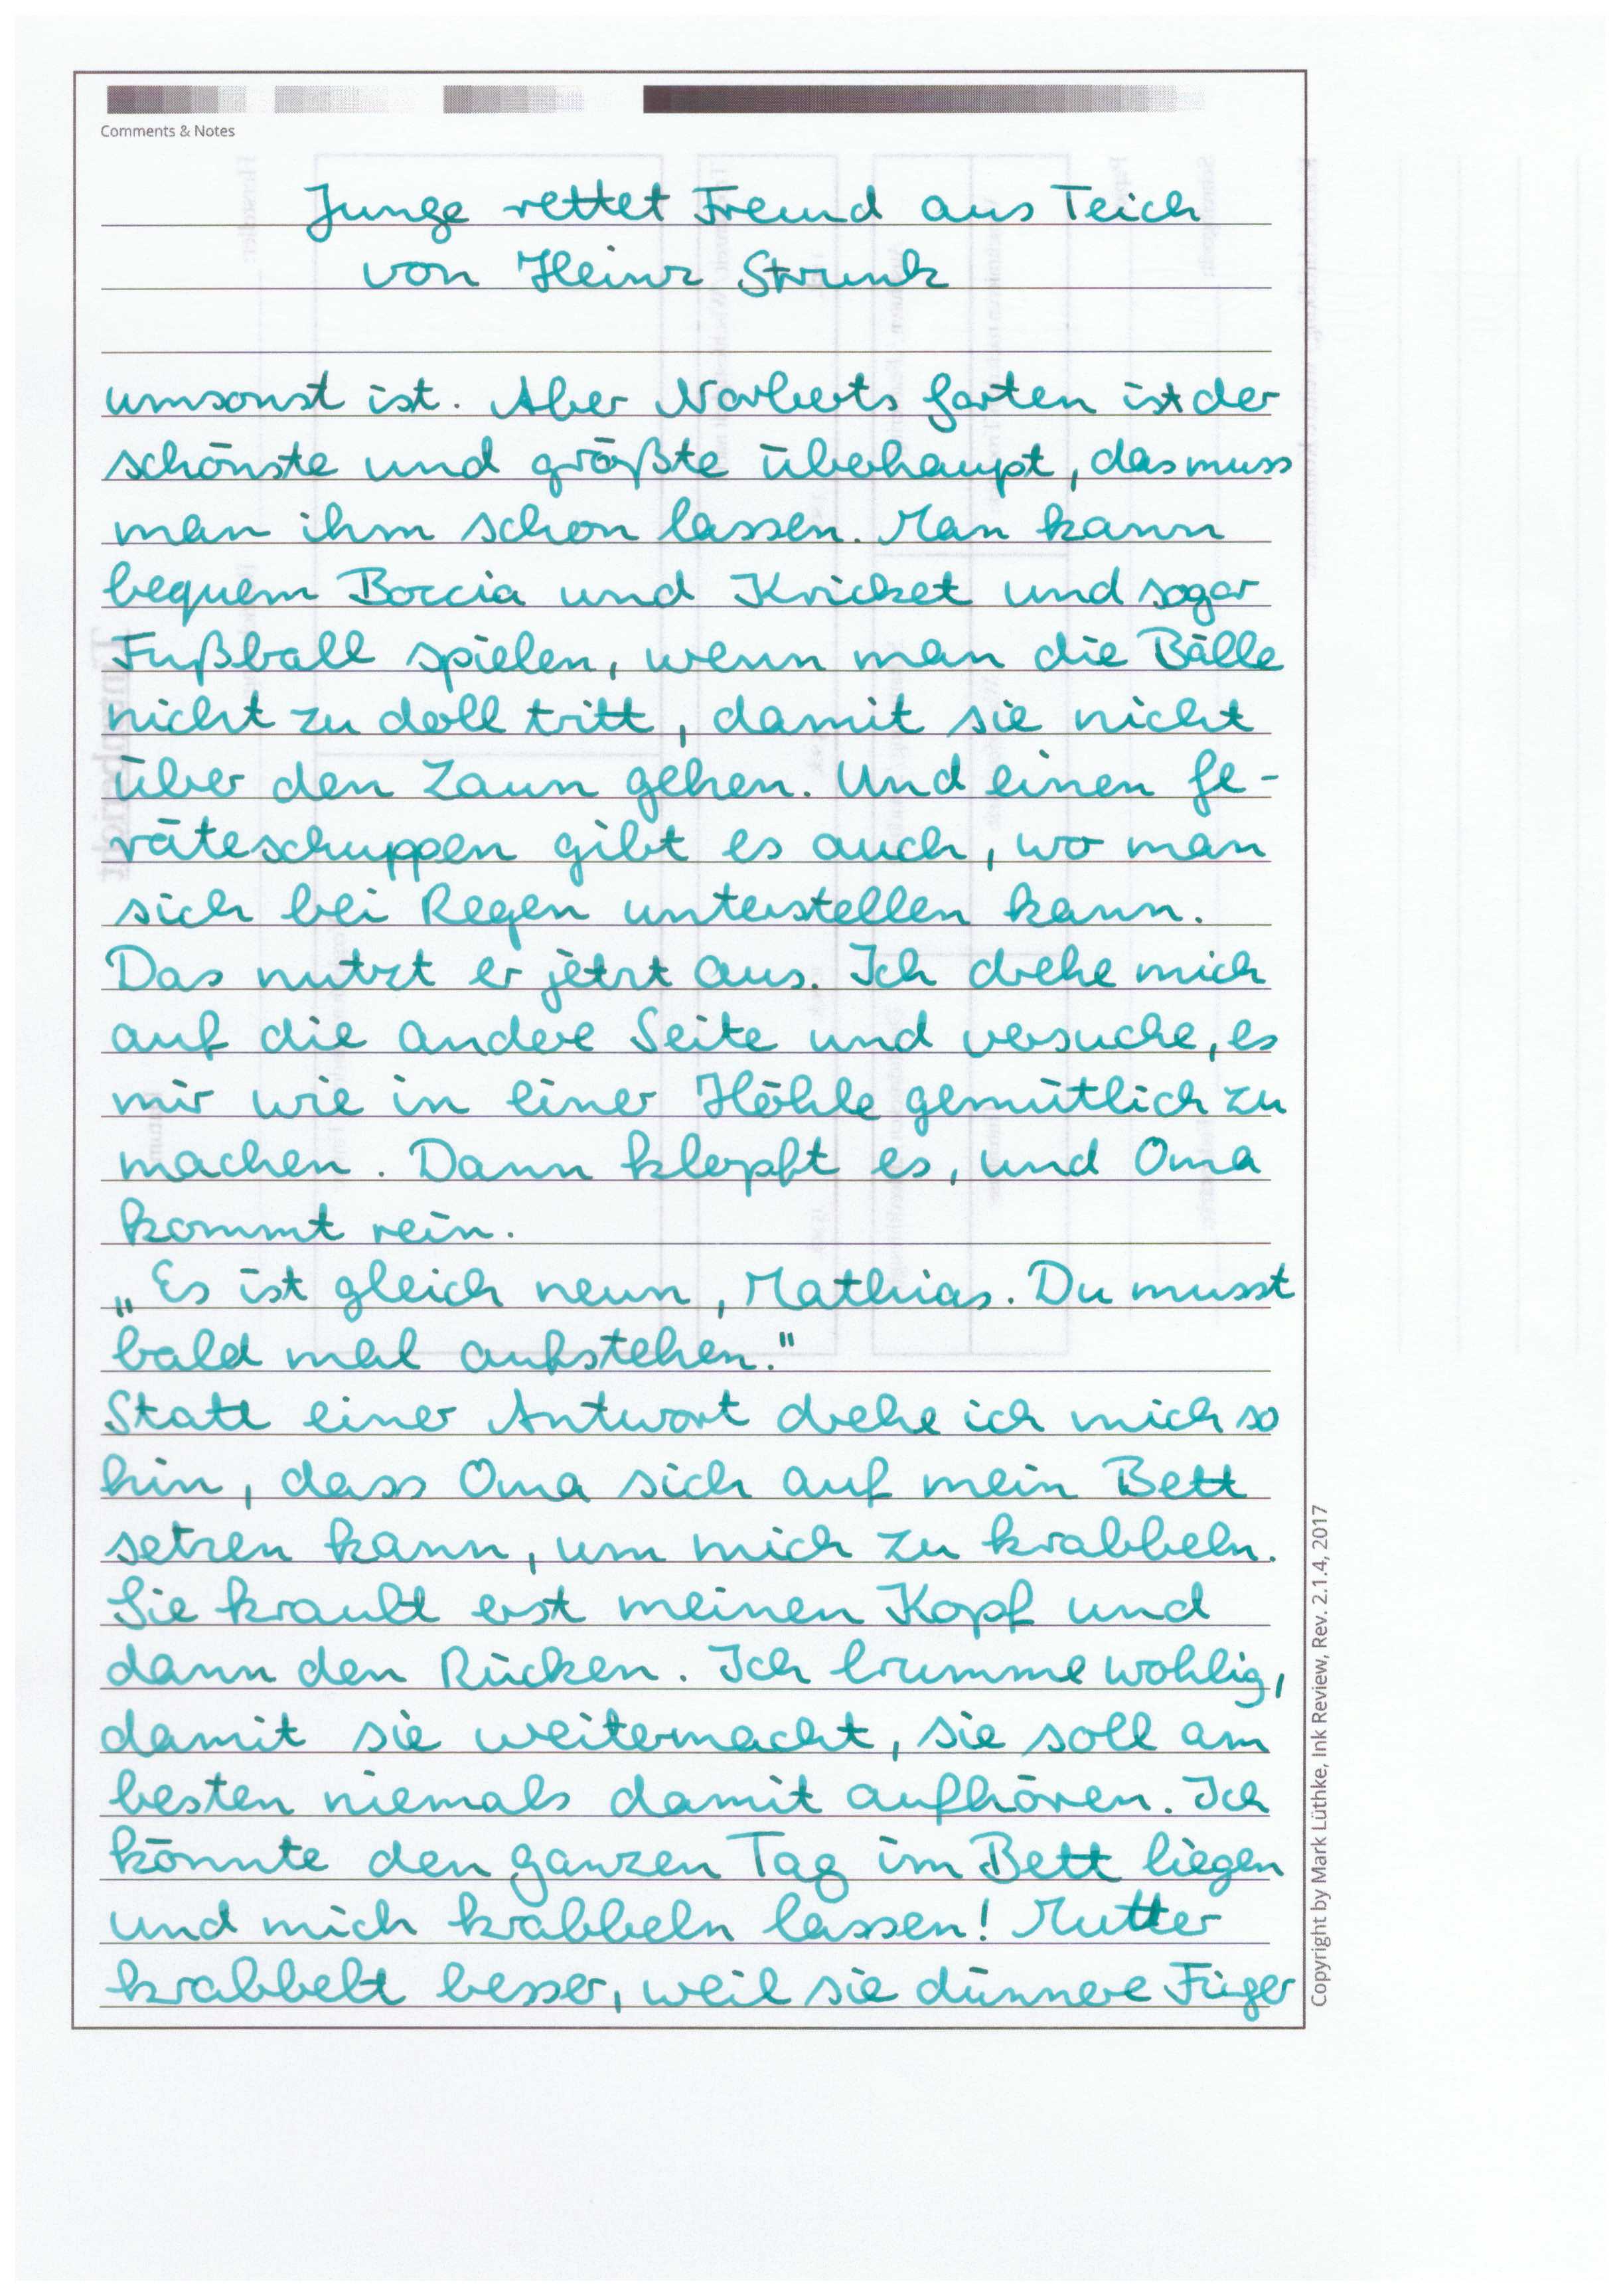 Comments & Notes
Junge rettet Freund aus Teich
von Heinz Strunk
umsonst ist. Aber Norberts Garten ist der
schönste und größte überhaupt, das muss
man ihm schon lassen. Man kann
bequem Boccia und Kricket und sogar
Fußball spielen, wenn man die Bälle
nicht zu doll tritt, damit sie nicht
über den Zaun gehen. Und einen Ge-
räteschuppen gibt es auch, wo man
sich bei Regen unterstellen kann.
Das nutzt er jetzt aus. Ich drehe mich
auf die andere Seite und versuche, es
mir wie in einer Höhle gemütlich zu
machen. Dann klopft es, und Oma
kommt rein.
„Es ist gleich neun, Mathias. Du musst
bald mal aufstehen."
Statt einer Antwort drehe ich mich so
hin, dass Oma sich auf mein Bett
setzen kann, um mich zu krabbeln.
Sie krault erst meinen Kopf und
dann den Rücken. Ich brumme wohlig,
damit sie weitermacht, sie soll am
besten niemals damit aufhören. Ich
könnte den ganzen Tag im Bett liegen
und mich krabbeln lassen! Mutter
krabbelt besser, weil sie dünnere Finger
Copyright by Mark Lüthke, Ink Review, Rev. 2.1.4, 2017